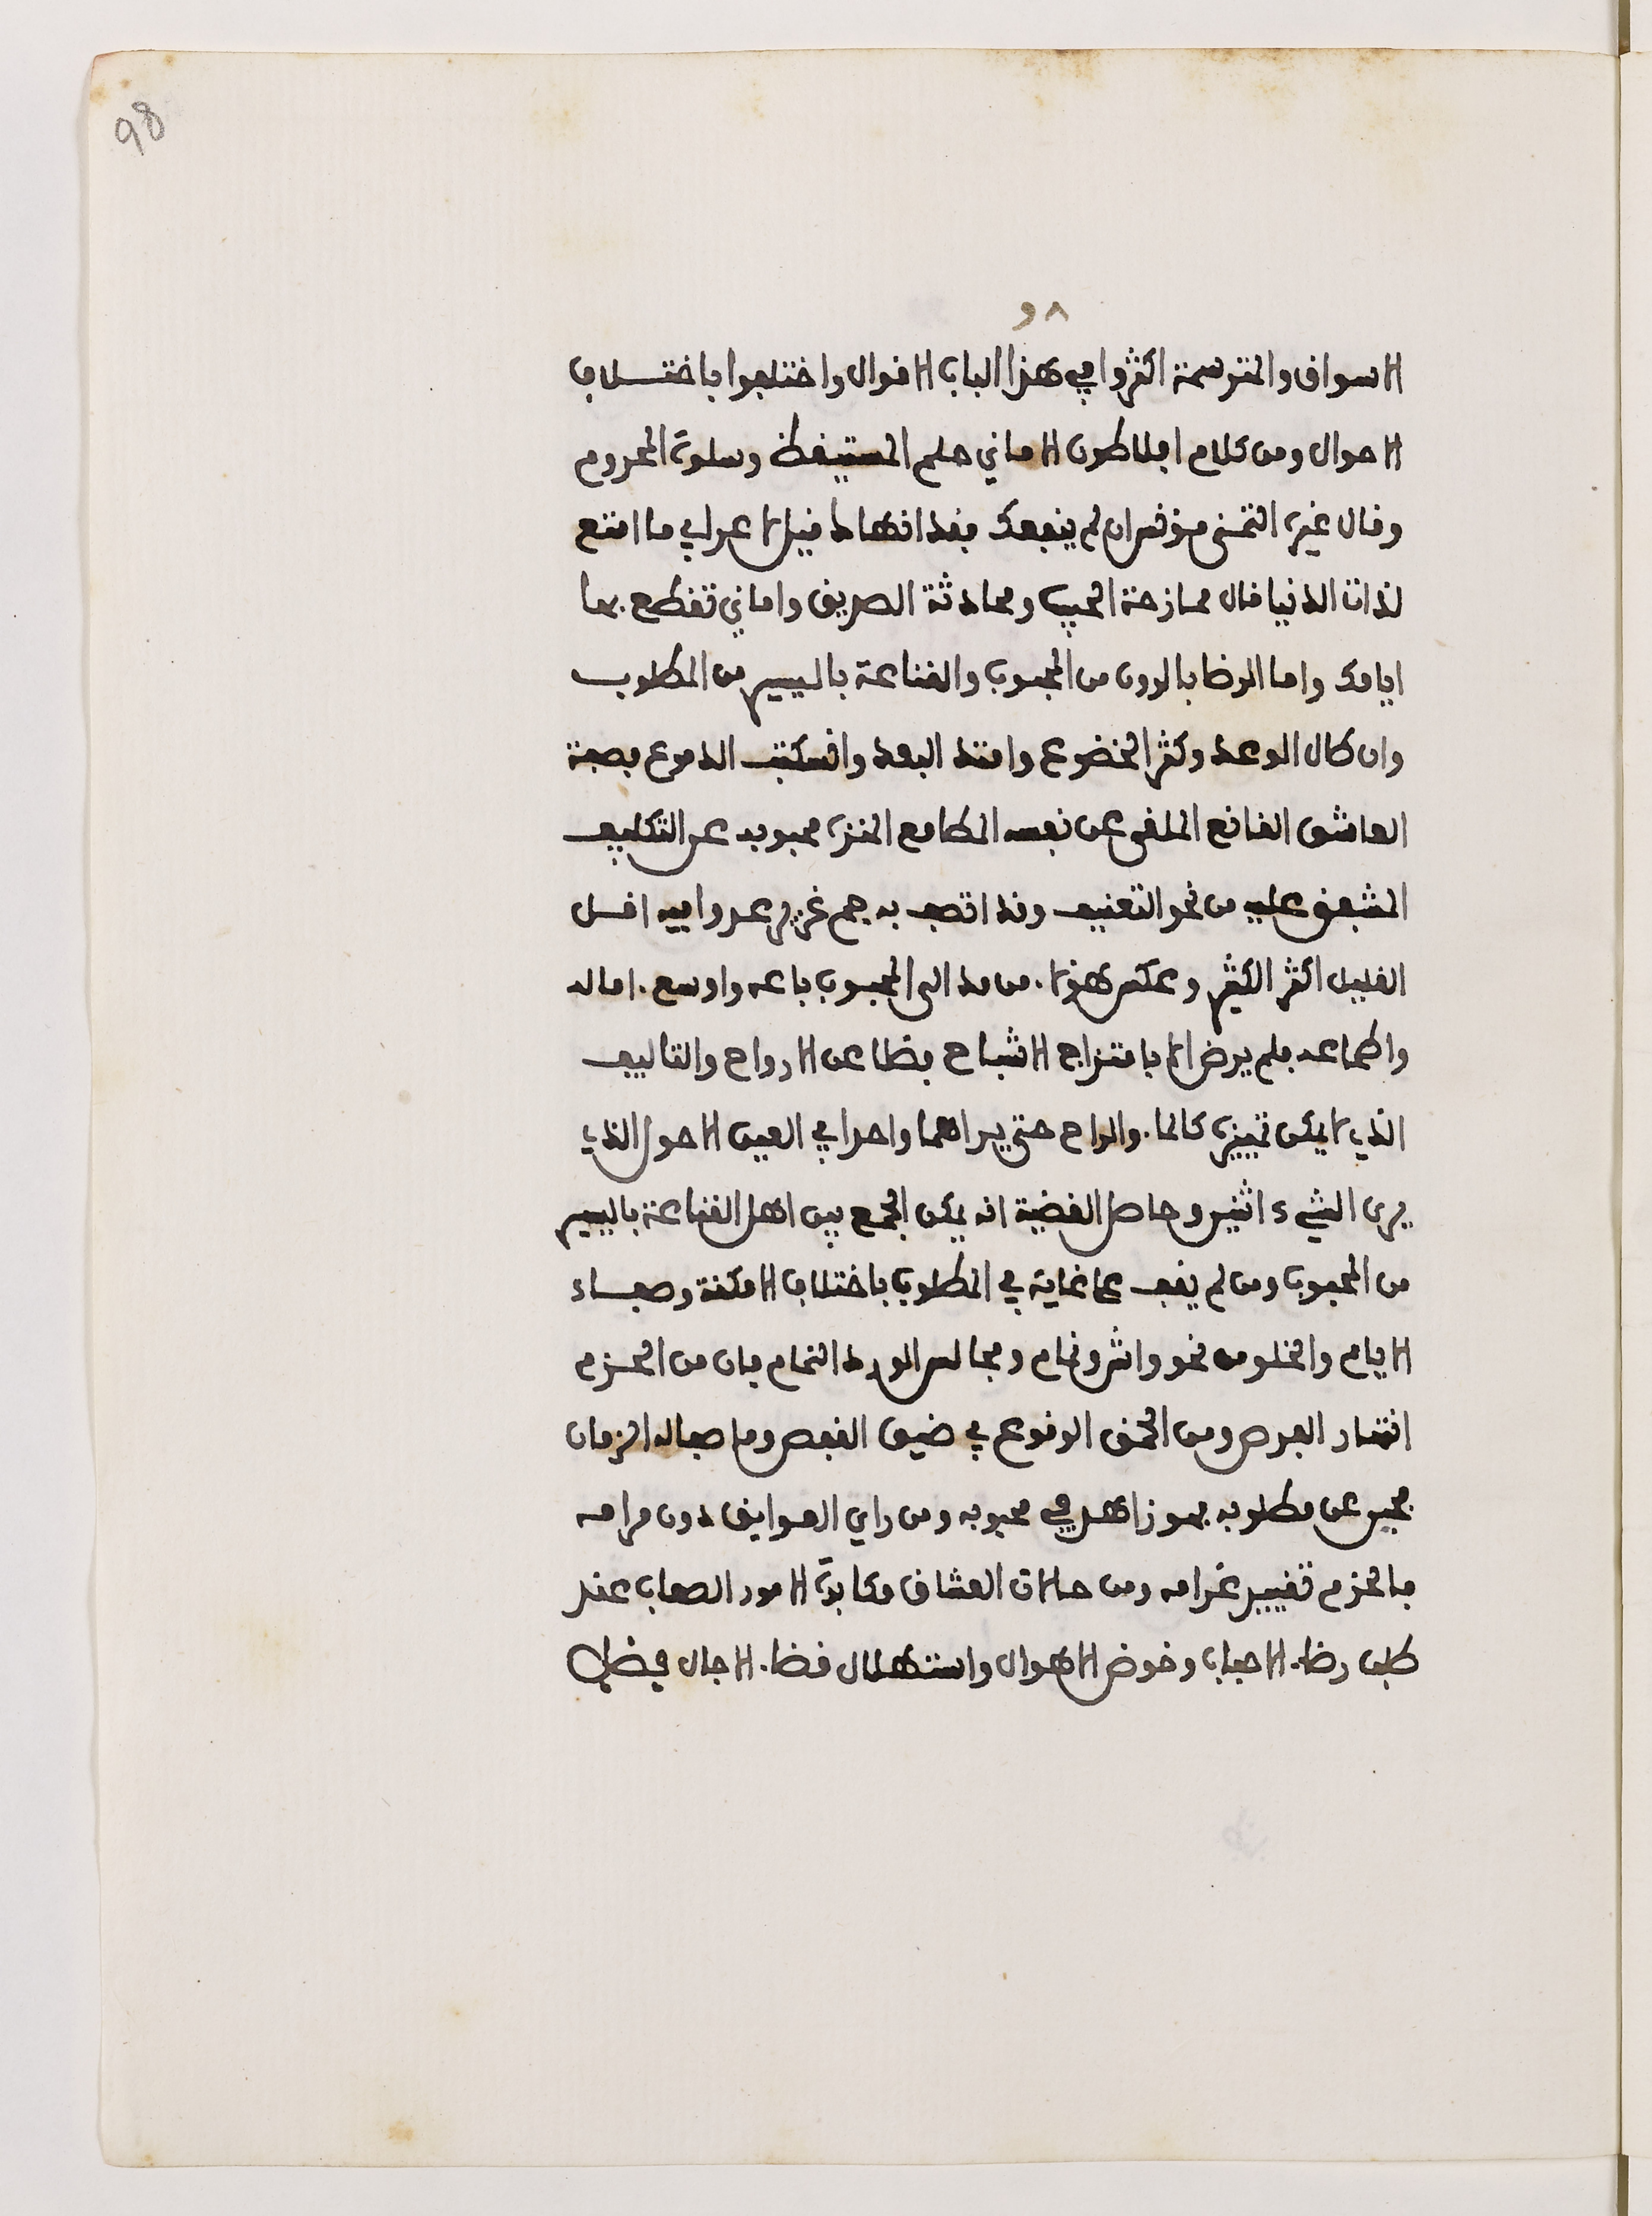 98
٩٨
الاسواق والمترسمة اكثروا في هذا الباب الاقوال واختلفوا باختلاف
الاحوال ومن كلام افلاطون الاماني حلم المستيقظ وسلوة المحروم
وقال غيره التمني مؤنس ان لم ينفعك فقد الهاك قيل لاعرابي ما امتع
لذات الدنيا قال ممازحة الحبيب ومحادثة الصديق واماني تقطع بها
ايامك واما الرضا بالدون من المحبوب والقناعة باليسير من المطلوب
وان طال الوعد وكثر الخضوع وامتد البعد وانسكبت الدموع فصفة
العاشق القانع الملقي عن نفسه المطامع المنزه محبوبه عن التكليف
المشفق عليه من نحو التعنيف وقد اتصف به جم غزير عدوا فيه اقل
القليل اكثر الكثير وعكس هؤلاء من مد الى المحبوب باعه واوسع اماله
واطماعه فلم يرض الا بامتزاج الاشباح فضلا عن الارواح والتاليف
الذي لا يمكن تمييزه كالماء والراح حتى يراهما واحدا في العين الاحول الذي
يرى الشيء اثنين وحاصل القضية انه يمكن الجمع بين اهل القناعة باليسير
من المحبوب ومن لم يقف على غاية في المطلوب باختلاف الامكنة وصفاء
الايام والخلو من نحو واش ونمام ومجالس الورد التمام فان من الحزم
انتهار الفرص ومن الحمق الوقوع في ضيق القفص وما صفا له الزمان
فجبن عن مطلوبه فهو زاهد في محبوبه ومن راى العوايق دون مرامه
فالحزم تغيير غرامه ومن حالات العشاق مكابدة الامور الصعاب عند
طلب رضاء الاحباب وخوض الاهوال واستهلال قضاء الاجال في ظل